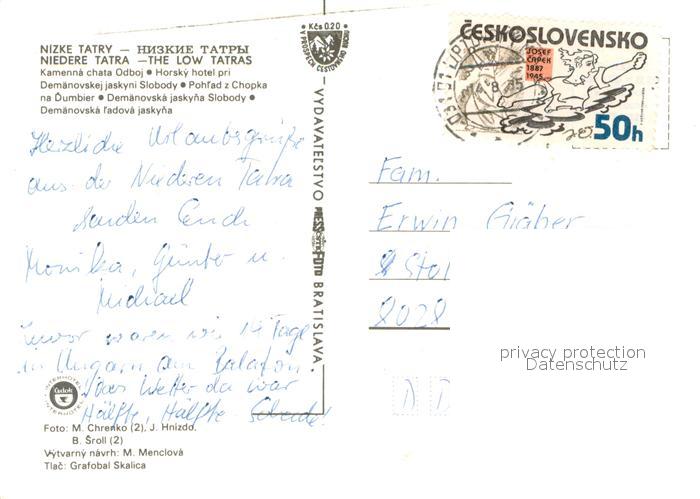 NÍZKE TATRY — НИЗКИЕ ТАТРЫ
NIEDERE TATRA —THE LOW TATRAS
Kamenná chata Odboj ● Horský hotel pri
Demänovskej jaskyni Slobody ● Pohľad z Chopka
na Ďumbier ● Demänovská jaskyňa Slobody ●
Demänovská ľadová jaskyňa
Herzliche Urlaubsgrüße
aus der Niederen Tatra
senden Euch
Monika, Günter u.
Michael
Zuvor waren wir 14 Tage
in Ungarn am Balaton
Das Wetter da war
Hälfte, Hälfte Schade!
INTERHOTEL
Čedok
INTERHOTEL
Foto: M. Chrenko (2), J. Hnízdo,
B. Šroll (2)
Výtvarný návrh: M. Menclová
Tlač: Grafobal Skalica
Kčs 0.20
V PROSPECH CESTOVNÉHO RUCHU
VYDAVATEĽSTVO PRESSFOTO BRATISLAVA
ČESKOSLOVENSKO
JOSEF
ČAPEK
1887
1945
50h
031 01
14.8.85
Fam.
Erwin Gräber
Stol
D D
privacy protection
Datenschutz